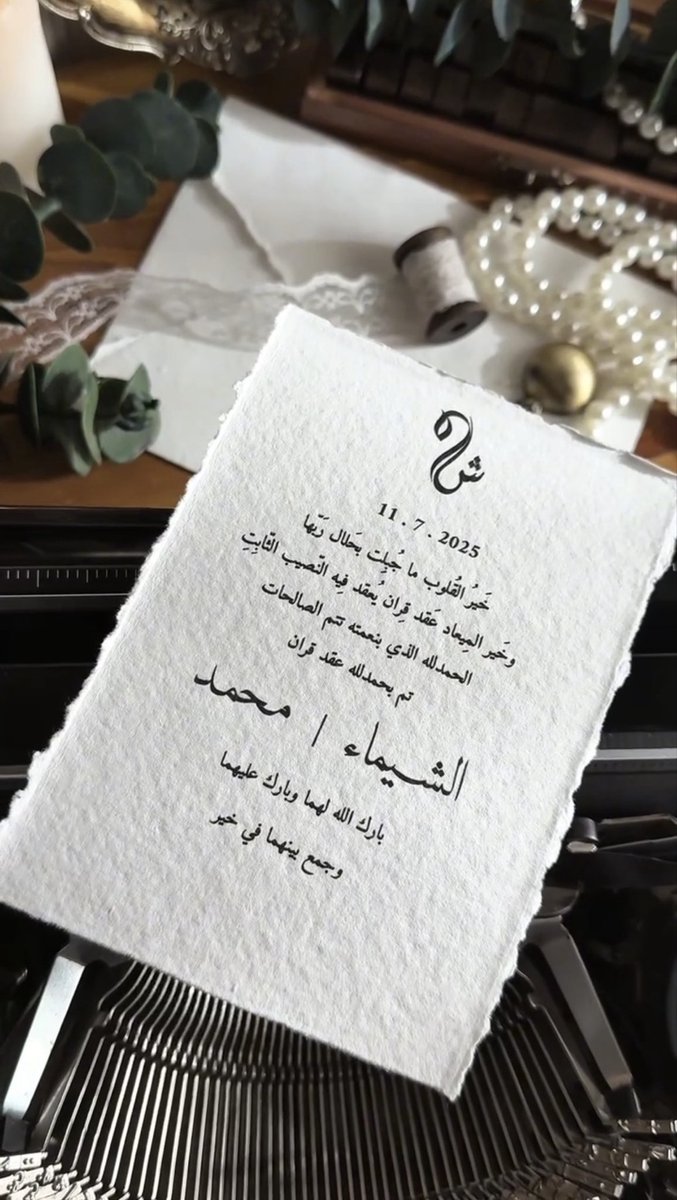 ش
11 . 7 . 2025
خَيرُ القُلوب ما جُبِلت بِحَلال رَبّها
وخَير المِيعاد عَقد قِران يُعقد فِيه النّصيب الثّابِتِ
الحمدلله الذي بنعمته تتم الصالحات
تم بحمدلله عقد قران
الشيماء / محمد
بارك الله لهما وبارك عليهما
وجمع بينهما في خير